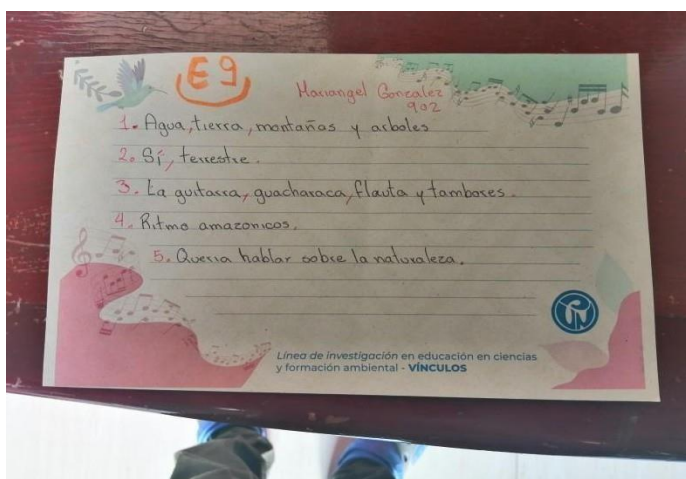 E9
Mariangel Gonzalez
902
1. Agua, tierra, montañas y arboles
2. Sí, terrestre.
3. La guitarra, guacharaca, flauta y tambores.
4. Ritmo amazonicos.
5. Queria hablar sobre la naturaleza.
Línea de investigación en educación en ciencias
y formación ambiental - VÍNCULOS